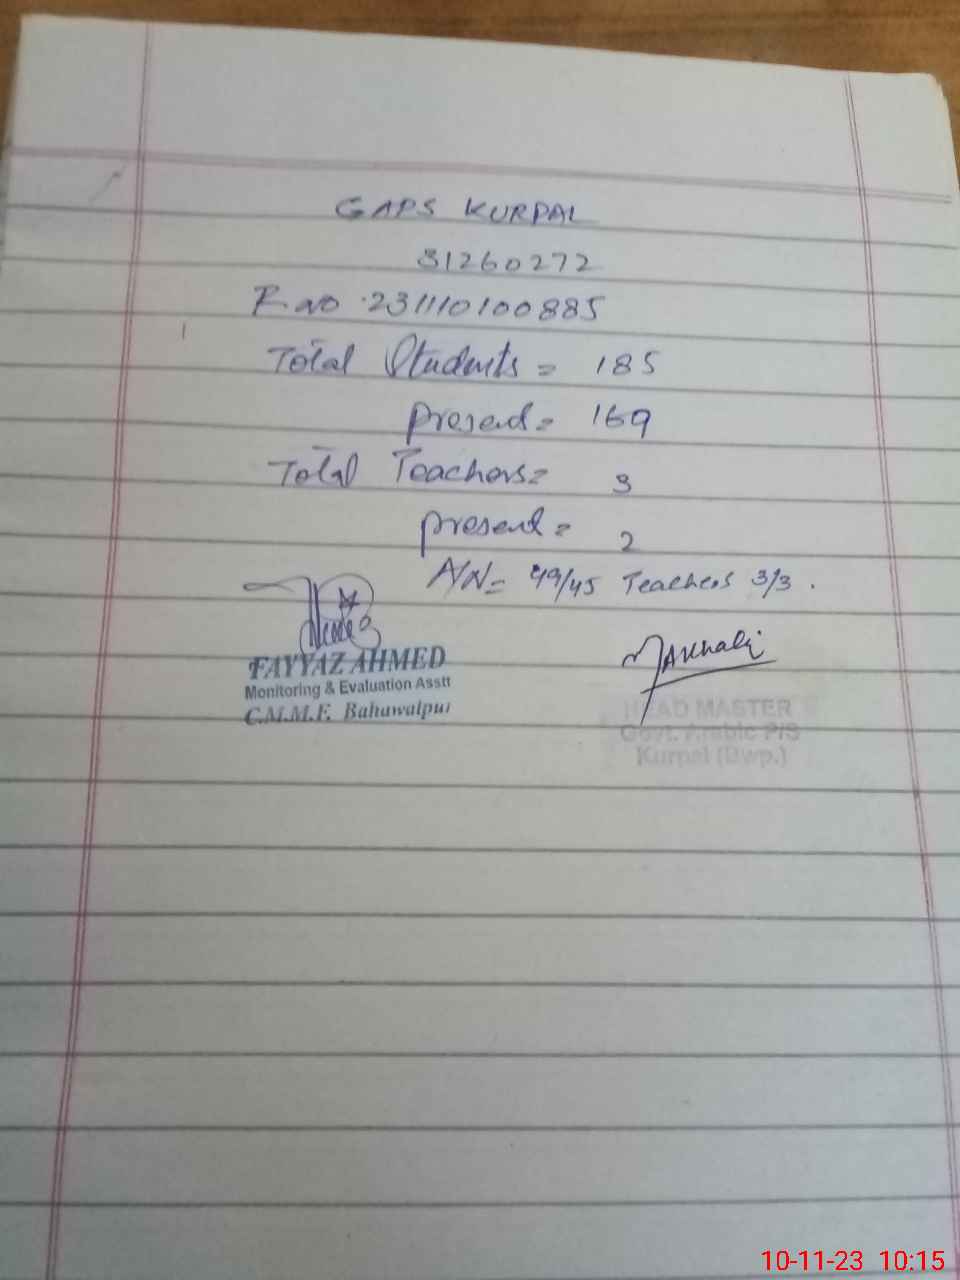 GAPS KURPAL
31260272
R no 231110100885
Total Students = 185
present = 169
Total Teachers = 3
present = 2
A/N = 49/45 Teachers 3/3 .
FAYYAZ AHMED
Monitoring & Evaluation Asstt
C.M.M.F. Bahawalpur
HEAD MASTER
Govt. Arabic P/S
Kurpal (Bwp.)
10-11-23 10:15